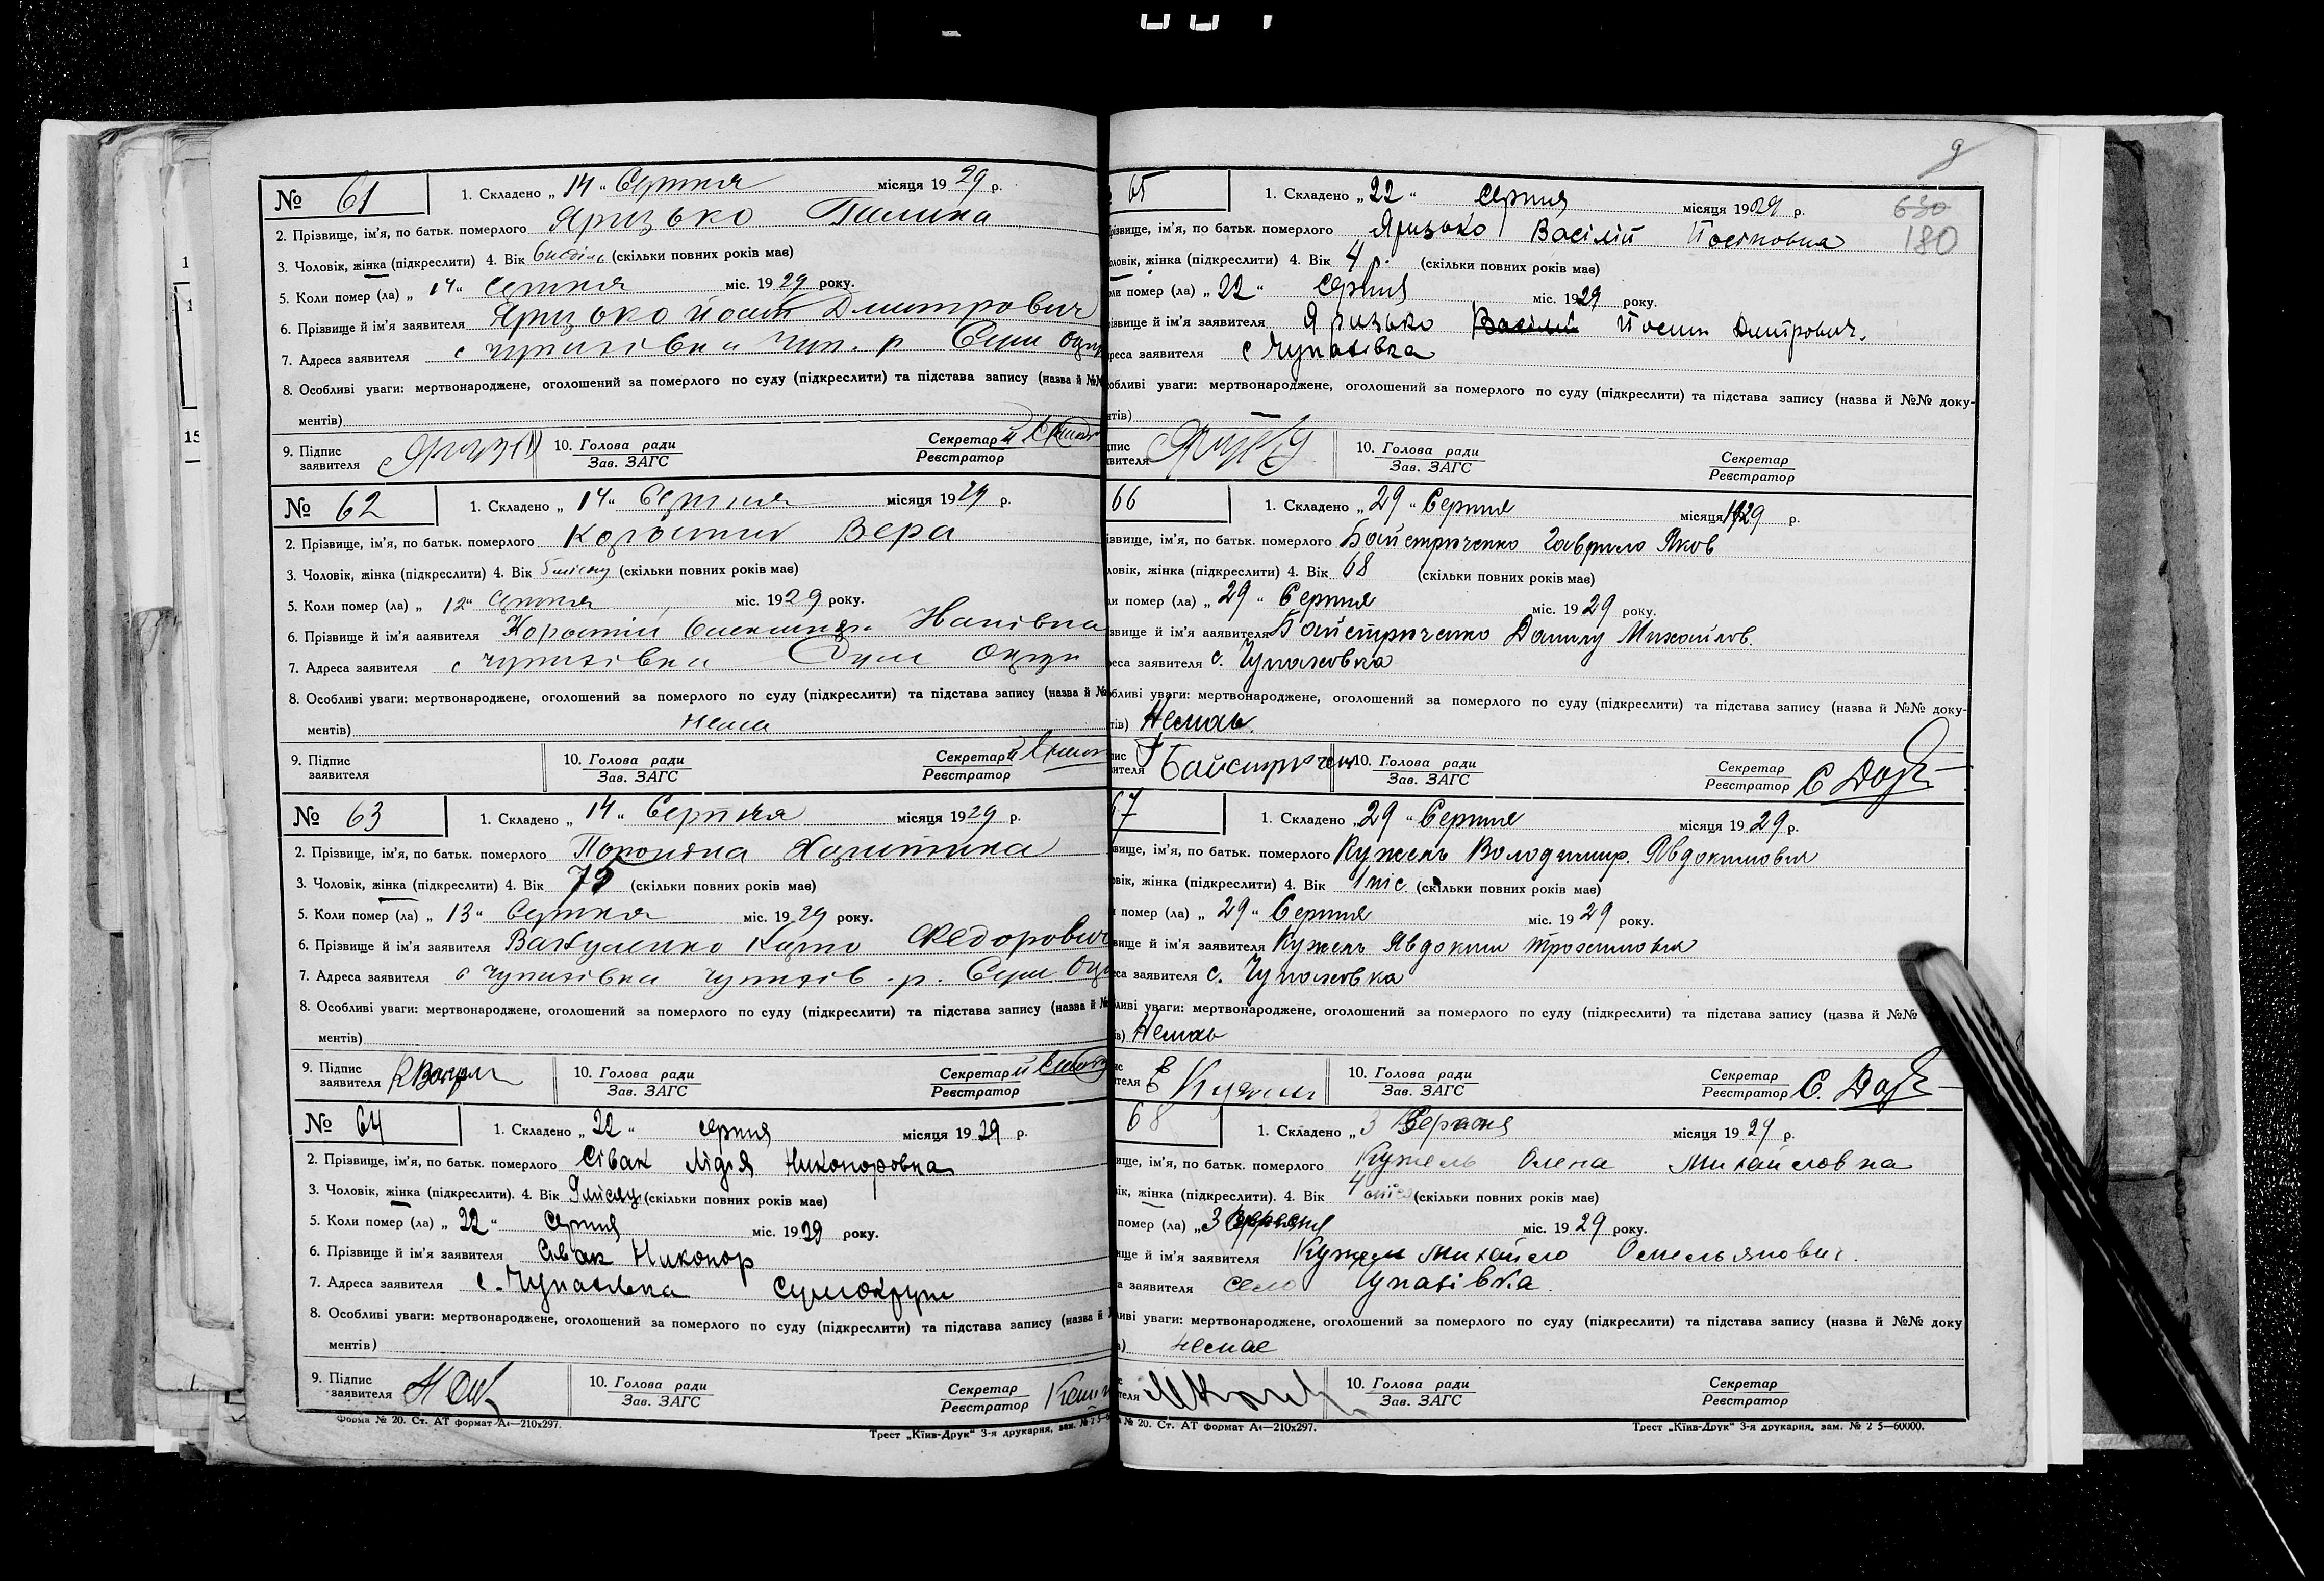 № 61
1. Складено „14“ Серпня місяця 1929 р.
2. Прізвище, ім'я, по батьк. померлого Яризько Галина
3. Чоловік, жінка (підкреслити) 4. Вік (скільки повних років має)
5. Коли помер (ла) „14“ Серпня міс. 1929 року.
6. Прізвище й ім'я заявителя Яризько Йосип Дмитрович
7. Адреса заявителя с Чупахівка Чуп. р Сум Окру
8. Особливі уваги: мертвонароджене, оголошений за померлого по суду (підкреслити) та підстава запису (назва й №№
ментів)
9. Підпис заявителя
10. Голова ради
Зав. ЗАГС
Секретар
Реєстратор
№ 62
1. Складено „14“ Серпня місяця 1929 р.
2. Прізвище, ім'я, по батьк. померлого Вера
3. Чоловік, жінка (підкреслити) 4. Вік 5 місяц (скільки повних років має)
5. Коли помер (ла) „12“ Серпня міс. 1929 року.
6. Прізвище й ім'я ааявителя
7. Адреса заявителя с Чупахівка Сум Округи
8. Особливі уваги: мертвонароджене, оголошений за померлого по суду (підкреслити) та підстава запису (назва й №
ментів) нема
9. Підпис заявителя
10. Голова ради
Зав. ЗАГС
Секретар
Реєстратор
№ 63
1. Складено „14“ Серпня місяця 1929 р.
2. Прізвище, ім'я, по батьк. померлого
3. Чоловік, жінка (підкреслити) 4. Вік 75 (скільки повних років має)
5. Коли помер (ла) „13“ Серпня міс. 1929 року.
6. Прізвище й ім'я заявителя Вакуленко Федорович
7. Адреса заявителя с Чупахівка Чупахів. р. Сум Окр
8. Особливі уваги: мертвонароджене, оголошений за померлого по суду (підкреслити) та підстава запису (назва й №
ментів)
9. Підпис заявителя
10. Голова ради
Зав. ЗАГС
Секретар
Реєстратор
№ 64
1. Складено „22“ серпня місяця 1929 р.
2. Прізвище, ім'я, по батьк. померлого Сівак Лідія Никоноровна
3. Чоловік, жінка (підкреслити). 4. Вік 9 місяц (скільки повних років має)
5. Коли помер (ла) „22“ серпня міс. 1929 року.
6. Прізвище й ім'я заявителя Сівак Никонор
7. Адреса заявителя с. Чупахівка Сумокруги
8. Особливі уваги: мертвонароджене, оголошений за померлого по суду (підкреслити) та підстава запису (назва й
ментів)
9. Підпис заявителя
10. Голова ради
Зав. ЗАГС
Секретар
Реєстратор
Форма № 20. Ст. АТ формат А4—210х297.
Трест „Київ-Друк“ 3-я друкарня, зам. № 2 5
9
630
180
65
1. Складено „22“ серпня місяця 1929 р.
різвище, ім'я, по батьк. померлого Яризько Васілій
оловік, жінка (підкреслити) 4. Вік 4 р. (скільки повних років має)
ли помер (ла) „22“ серпня міс. 1929 року.
ізвище й ім'я заявителя Яризько Васілий Йосип Дмитрович.
реса заявителя с Чупахівка
обливі уваги: мертвонароджене, оголошений за померлого по суду (підкреслити) та підстава запису (назва й №№ доку-
нтів)
10. Голова ради
Зав. ЗАГС
Секретар
Реєстратор
66
1. Складено „29“ Серпня місяця 1929 р.
ізвище, ім'я, по батьк. померлого Байстрюченко Гаврило Яков
ловік, жінка (підкреслити) 4. Вік 68 (скільки повних років має)
ли помер (ла) „29“ Серпня міс. 1929 року.
звище й ім'я ааявителя Байстрюченко Данилу Михайлов.
реса заявителя с. Чупаховка
бливі уваги: мертвонароджене, оголошений за померлого по суду (підкреслити) та підстава запису (назва й №№ доку-
тів) Немає.
Байстрюченк
10. Голова ради
Зав. ЗАГС
Секретар
Реєстратор
67
1. Складено „29“ Серпня місяця 1929 р.
вище, ім'я, по батьк. померлого Кужель Володимир. Явдокимович
овік, жінка (підкреслити) 4. Вік 1 міс. (скільки повних років має)
помер (ла) „29“ Серпня міс. 1929 року.
вище й ім'я заявителя Кужель Явдоким Трохимович
са заявителя с. Чупаховка
ливі уваги: мертвонароджене, оголошений за померлого по суду (підкреслити) та підстава запису (назва й №№
ів) Немає
Кужель
10. Голова ради
Зав. ЗАГС
Секретар
Реєстратор
68
1. Складено „3 місяця 1929 р.
ище, ім'я, по батьк. померлого Кужель Олена Михайловна
ік, жінка (підкреслити). 4. Вік 4 (скільки повних років має)
помер (ла) „3 міс. 1929 року.
ище й ім'я заявителя Кужель Михайло Омельянович.
а заявителя село Чупахівка.
иві уваги: мертвонароджене, оголошений за померлого по суду (підкреслити) та підстава запису (назва й №№ доку
) немає
10. Голова ради
Зав. ЗАГС
Секретар
Реєстратор
№ 20. Ст. АТ формат А4—210х297.
Трест „Київ-Друк“ 3-я друкарня, зам. № 2 5—60000.